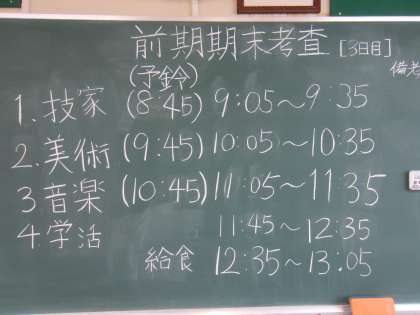 前期期末考査 [3日目]
備考
(予鈴)
1.技家 (8:45) 9:05～9:35
2.美術 (9:45) 10:05～10:35
3音楽 (10:45) 11:05～11:35
4.学活 11:45～12:35
給食 12:35～13.05